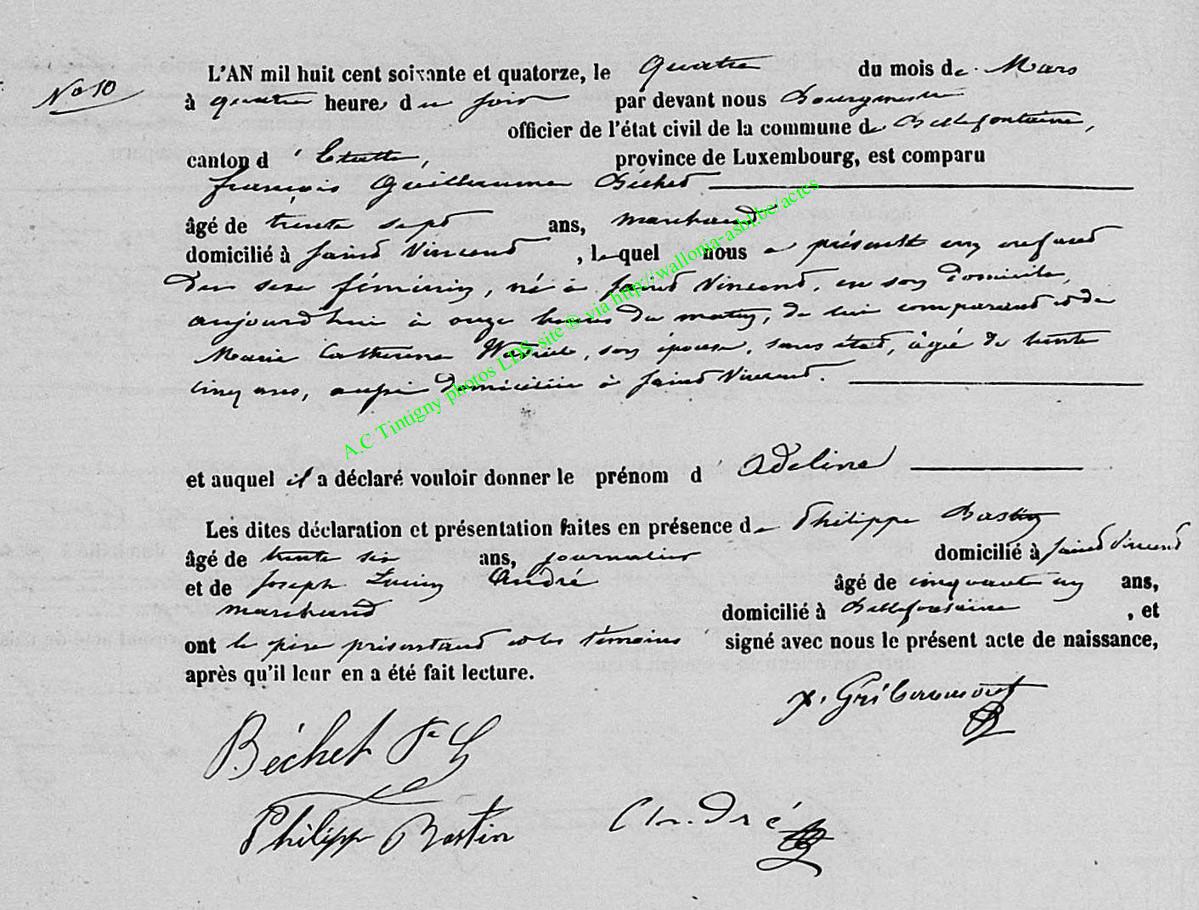 No 10
L'AN mil huit cent soixante et quatorze, le Quatre du mois de Mars
à quatre heures du soir par devant nous Bourgmestre
officier de l'état civil de la commune de Bellefontaine,
canton d'Etalle, province de Luxembourg, est comparu
françois Guillaume Béchet
âgé de trente sept ans, marchand
domicilié à Saint Vincent, lequel nous a présenté un enfant
Du sexe féminin, né à Saint Vincent, en son domicile,
aujourd'hui à onze heures du matin, de lui comparant et de
Marie Catherine, son épouse, sans état, âgée de trente
cinq ans, aussi domiciliée à Saint Vincent.
et auquel il a déclaré vouloir donner le prénom d'Adeline
Les dites déclaration et présentation faites en présence de Philippe Bastin
âgé de trente six ans, journalier domicilié à Saint Vincent
et de Joseph André âgé de cinquante un ans,
marchand domicilié à Bellefontaine, et
ont le père présentant et les témoins signé avec nous le présent acte de naissance,
après qu'il leur en a été fait lecture.
Béchet
Philippe Bastin
André
A.C Tintigny photos LDS site ® via http://wallonia-asbl.be/actes